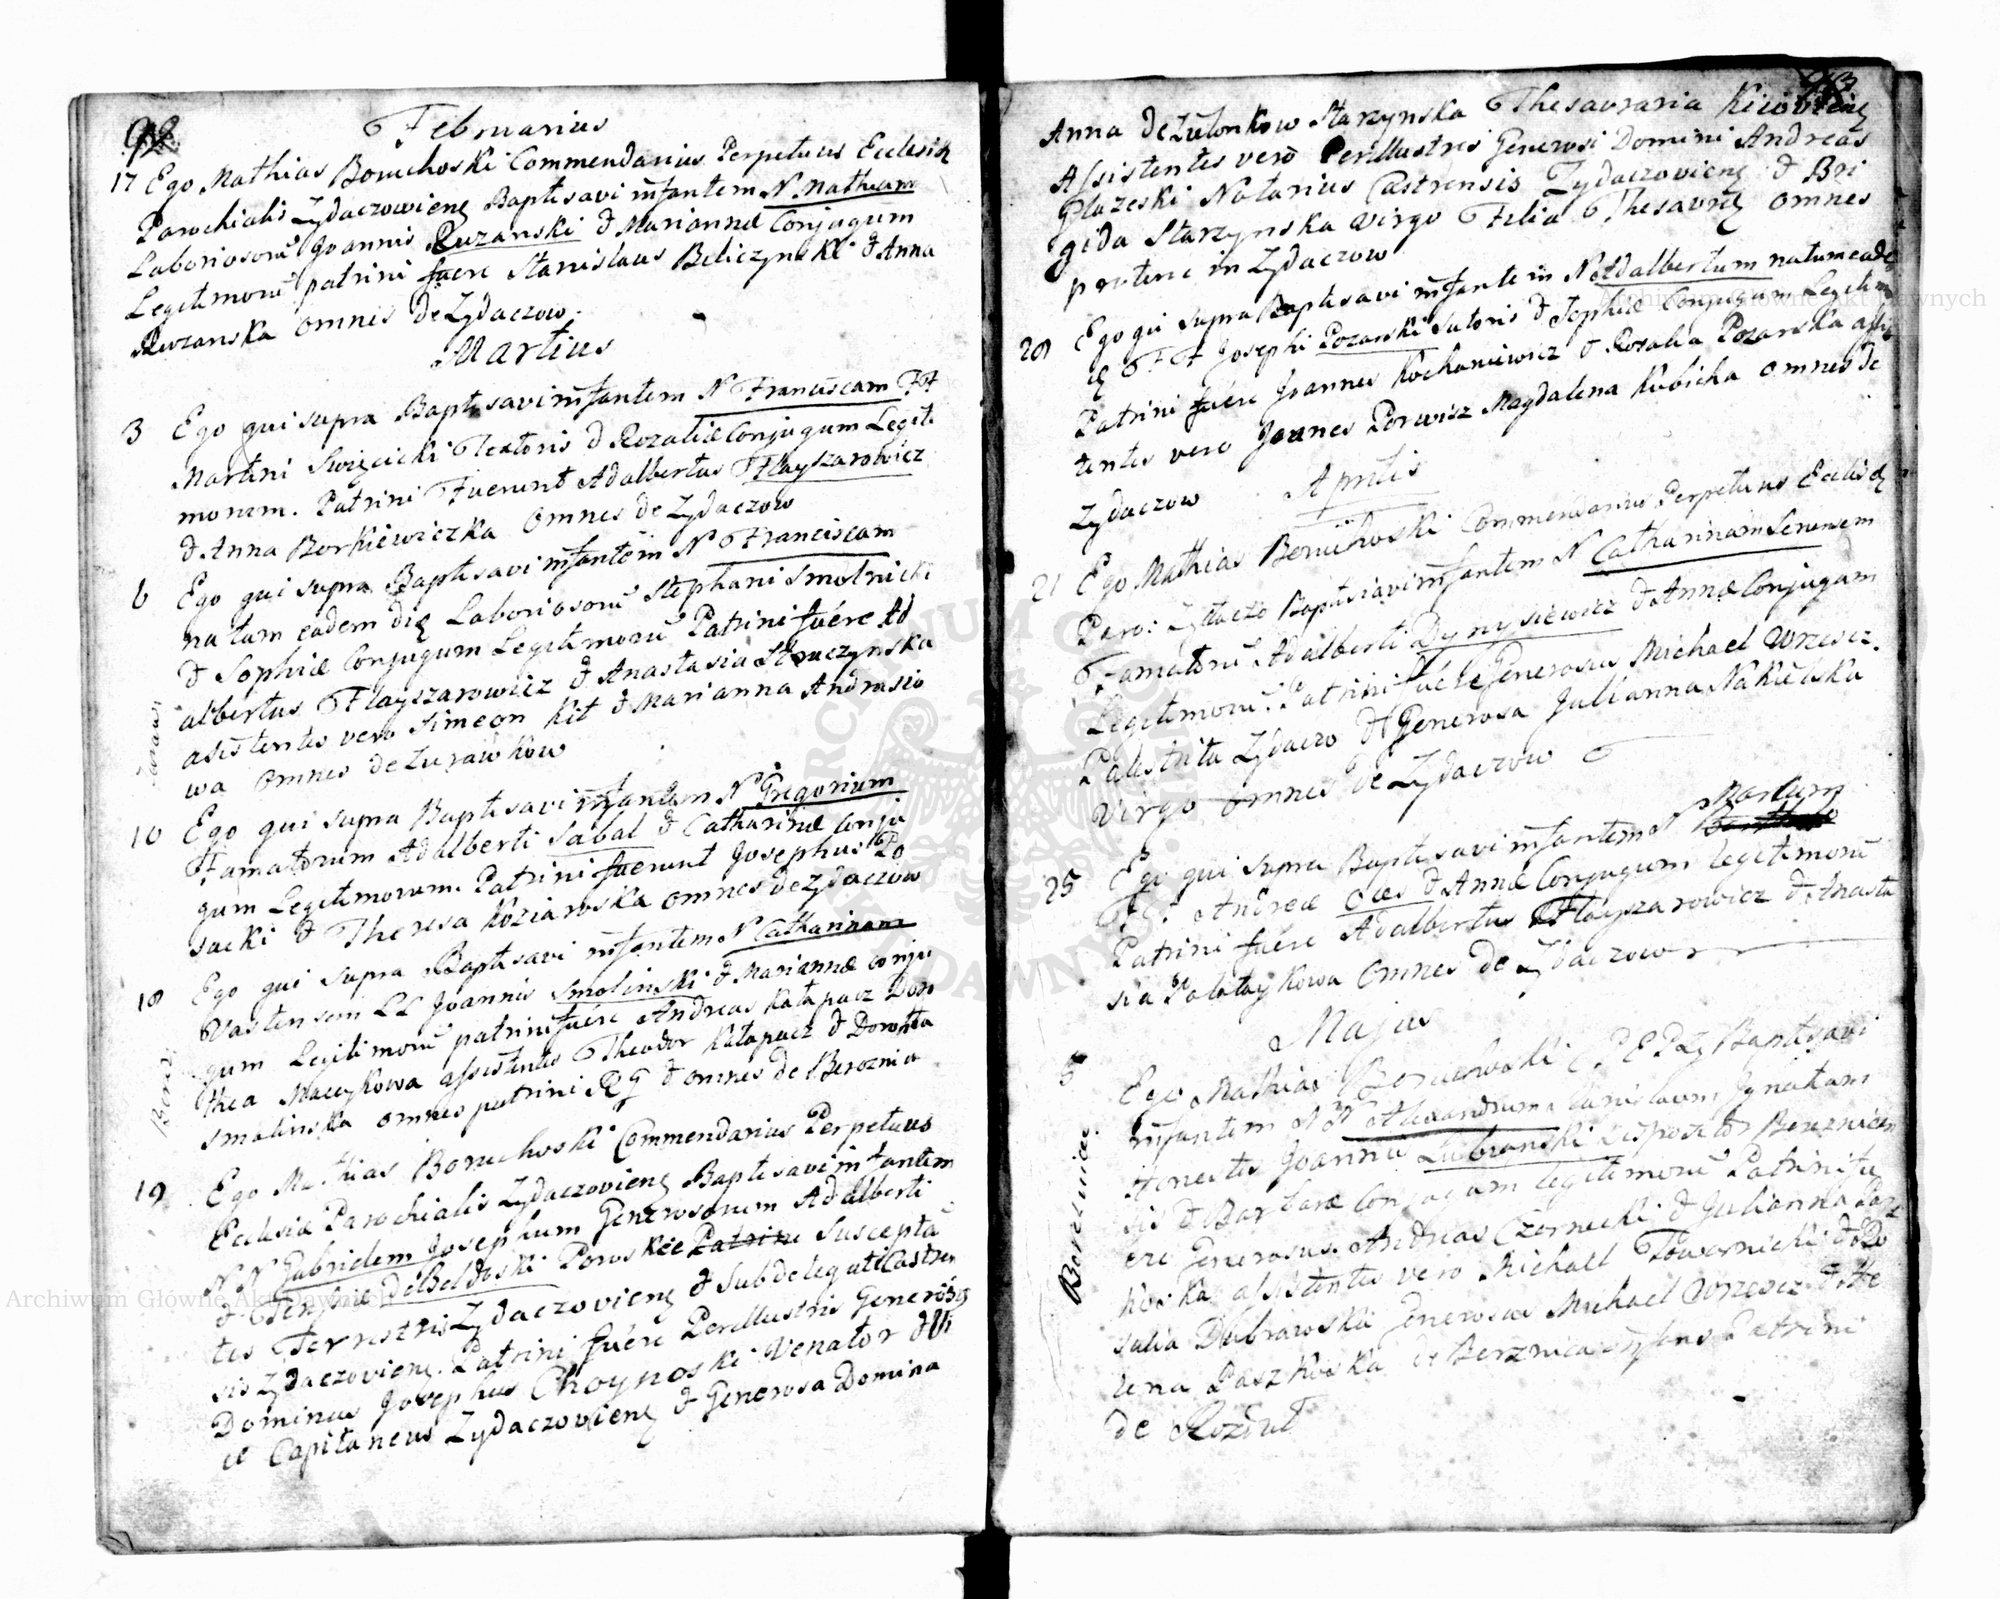 92
Februarius
17 Ego Mathias Boruchoski Commendarius Perpetuus Ecclesię
Parochialis Zydaczowienę Baptisavi infantem N. Mathiam
Laboriosorū Joannis Ruzanski & Mariannæ Conjugum
Legitimorū patrini fuere Stanislaus Beliczynski & Anna
Ruzanska omnes de Zydaczow.
Martius
3 Ego qui supra Baptisavi infantem N Franciscam FF
Martini Swięcicki Textoris & Rozaliæ Conjugum Legiti
morum. Patrini Fuerunt Adalbertus Flayszarowicz
& Anna Borkiewiczka omnes de Zydaczow
6 Ego qui supra Baptisavi infantem N Franciscam
natam eadem dię Laboriosorū Stephani Smolnicki
& Sophiæ Conjugum Legitimorū Patrini fuére Ad
albertus Flayszarowicz & Anastasia
asistentes vero Simeon Kit & Marianna Andrusio
wa omnes de Zurawkow
10 Ego qui supra Baptisavi infantem N Gregorium
Famatorum Adalberti Sabal & Catharinæ Conju
gum Legitimorum. Patrini fuerunt Josephus Po
sacki & Theresa Koziarowska omnes de Zydaczow
18 Ego qui supra Baptisavi infantem N Catharinam
LL Joannis Smolinski & Mariannæ conju
gum Legitimorū patrini fuére Andreas Katapacz Doro
thea Maceykowa assistentes Theodor Katapacz & Dorotha
Smolinska omnes patrini RG & omnes de Bereznica
19 Ego Mathias Boruchoski Commendarius Perpetuus
Ecclesiæ Parochialis Zydaczovienę Baptisavi infantem
N N Gabrielem Josephum Generosorum Adalberti
& de Beldoski Poroskie Patrini Suscepta
tes Terrestris Zydaczovienę & Subdelegati Castren
sis Zydaczovienę. Patrini fuére Perillustris Generosus
Dominus Josephus Choynoski Venator & Vi
ce Capitaneus Zydaczovienę & Generosa Domina
93
Anna de Starzynska Thesauraria Kiiovienę
Assistentes verò Perillustris Generosi Domini Andreas
Glazeski Notarius Castrensis Zydaczovienę & Bri
gida Starzynska Virgo Filia Thesaurę omnes
protunc in Zydaczow
28 Ego qui supra Baptisavi infantem N Adalbertum natum eadę
FF Josephi Pozanski Sutoris & Sophiæ Conjugum Legitim
Patrini fuére Joannes Kochaniewicz & Rosalia Pozanska assis
tentes vero Joanes Porwisz Magdalena Kubicka omnes de
Zydaczow
Aprilis
21 Ego Mathias Boruchoski Commendarius Perpetuus Eclisię
Paro: Baptisavi infantem N Catharinam Senensem
Famatorū Adalberti Dynysiewicz & Annæ Conjugum
Legitimorū. Patrini fuére Generosus Michael Wrzescz
Palestrita Zydaczo & Generosa Julianna Nakielska
Virgo omnes de Zydaczow
25 Ego qui supra Baptisavi infantem N Martum
FF: Andreæ Oles & Annæ Conjugum legitimorū
Patrini fuére Adalbertus Flayszarowicz & Anasta
sia omnes de Zydaczow
Majus
5 Ego Mathias Boruchoski C P E P Zy Baptisavi
infantem N N Alexandrum Stanislaum Ignatium
Honestis Joannis Lubranski Dispositor Bereznicen
sis & Barbaræ Conjugum legitimorū Patrini fu
ere Generosus Andreas Czernecki & Julianna Pasz
koska assistentes vero Michael Towarnicki &
salia Dubrawska Generosus Michael Wrzescz & He
lena Paszkoska de Bereznica Patrini
de Rozdul
Bereznica